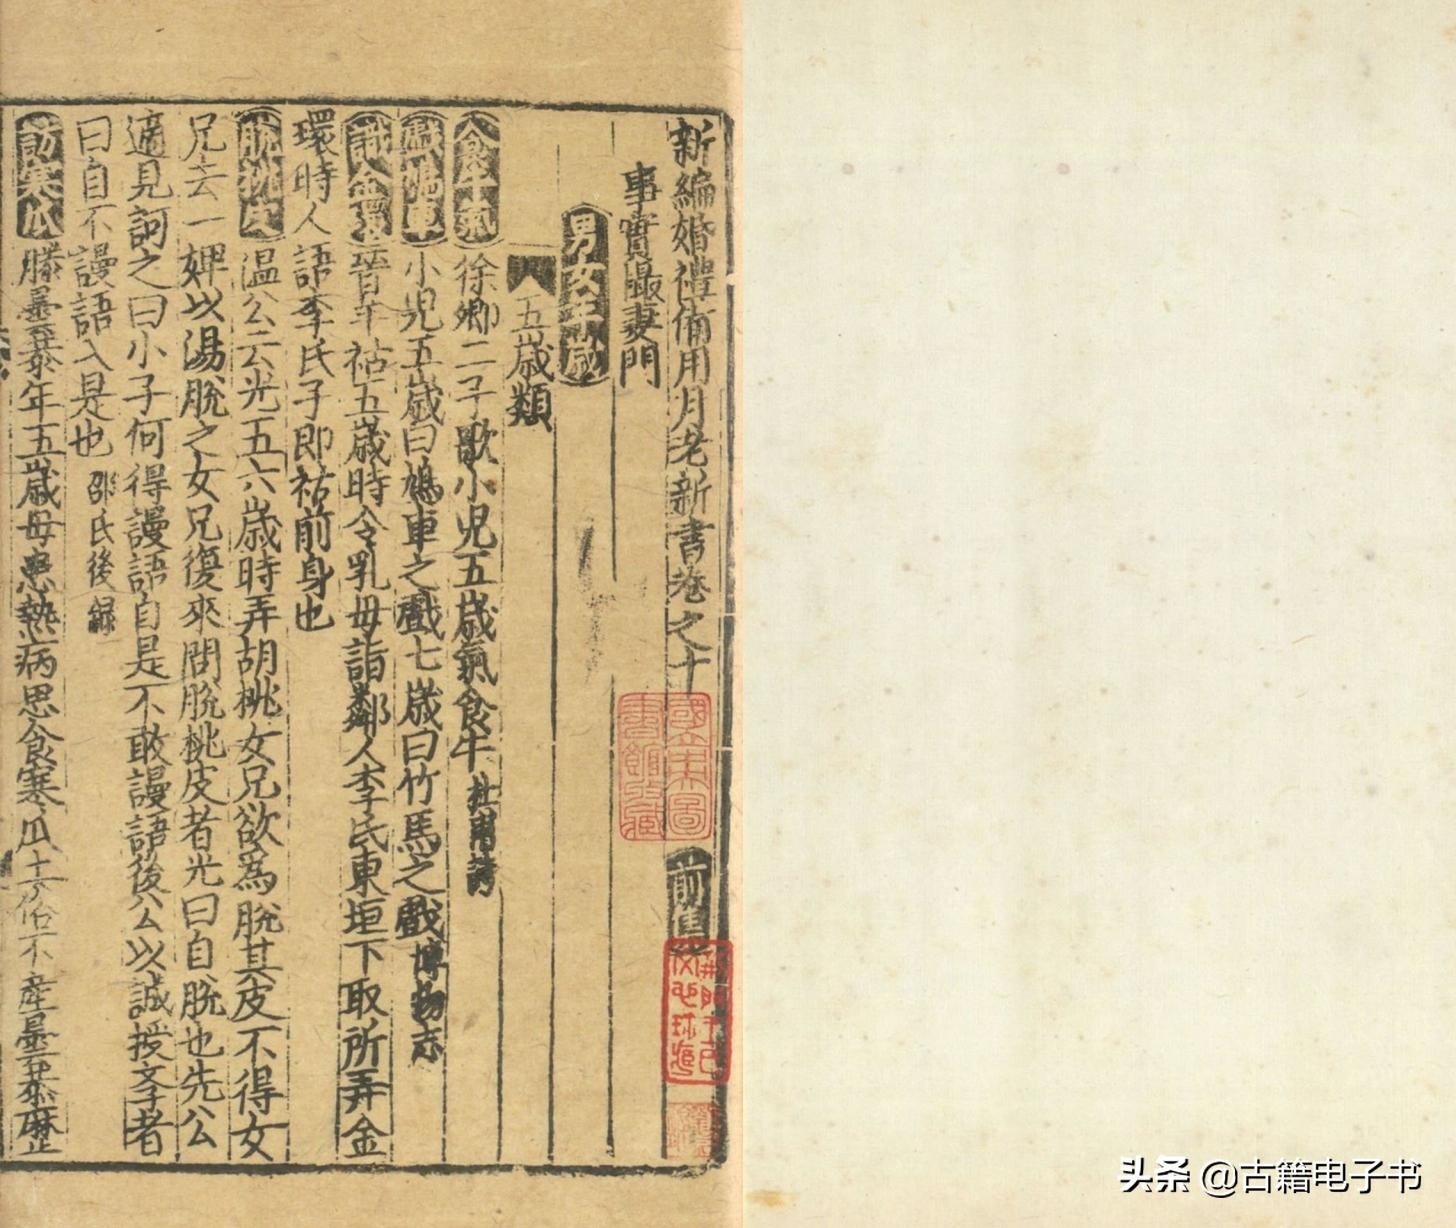 新編婚禮備用月老新書卷之十
前集
事實㩴妻門
男女年歲
五歲類
食牛氣 徐卿二子歌小児五歲氣食牛 杜甫詩
戲鳩車 小児五歲曰鳩車之戲七歲曰竹馬之戲 博物志
識金環 晉羊祜五歲時令乳母詣鄰人李氏東垣下取所弄金
環時人語李氏子即祜前身也
脫桃皮 温公云光五六歲時弄胡桃女兄欲為脫其皮不得女
兄去一婢以湯脫之女兄復來問脫桃皮者光曰自脫也先公
適見訶之曰小子何得謾語自是不敢謾語後公以誠授學者
曰自不謾語入是也 邵氏後録
訪寒瓜 滕曇恭年五歲母患熱病思食寒瓜土俗不産曇恭歷
國立中央圖書館收藏
头条 @古籍电子书